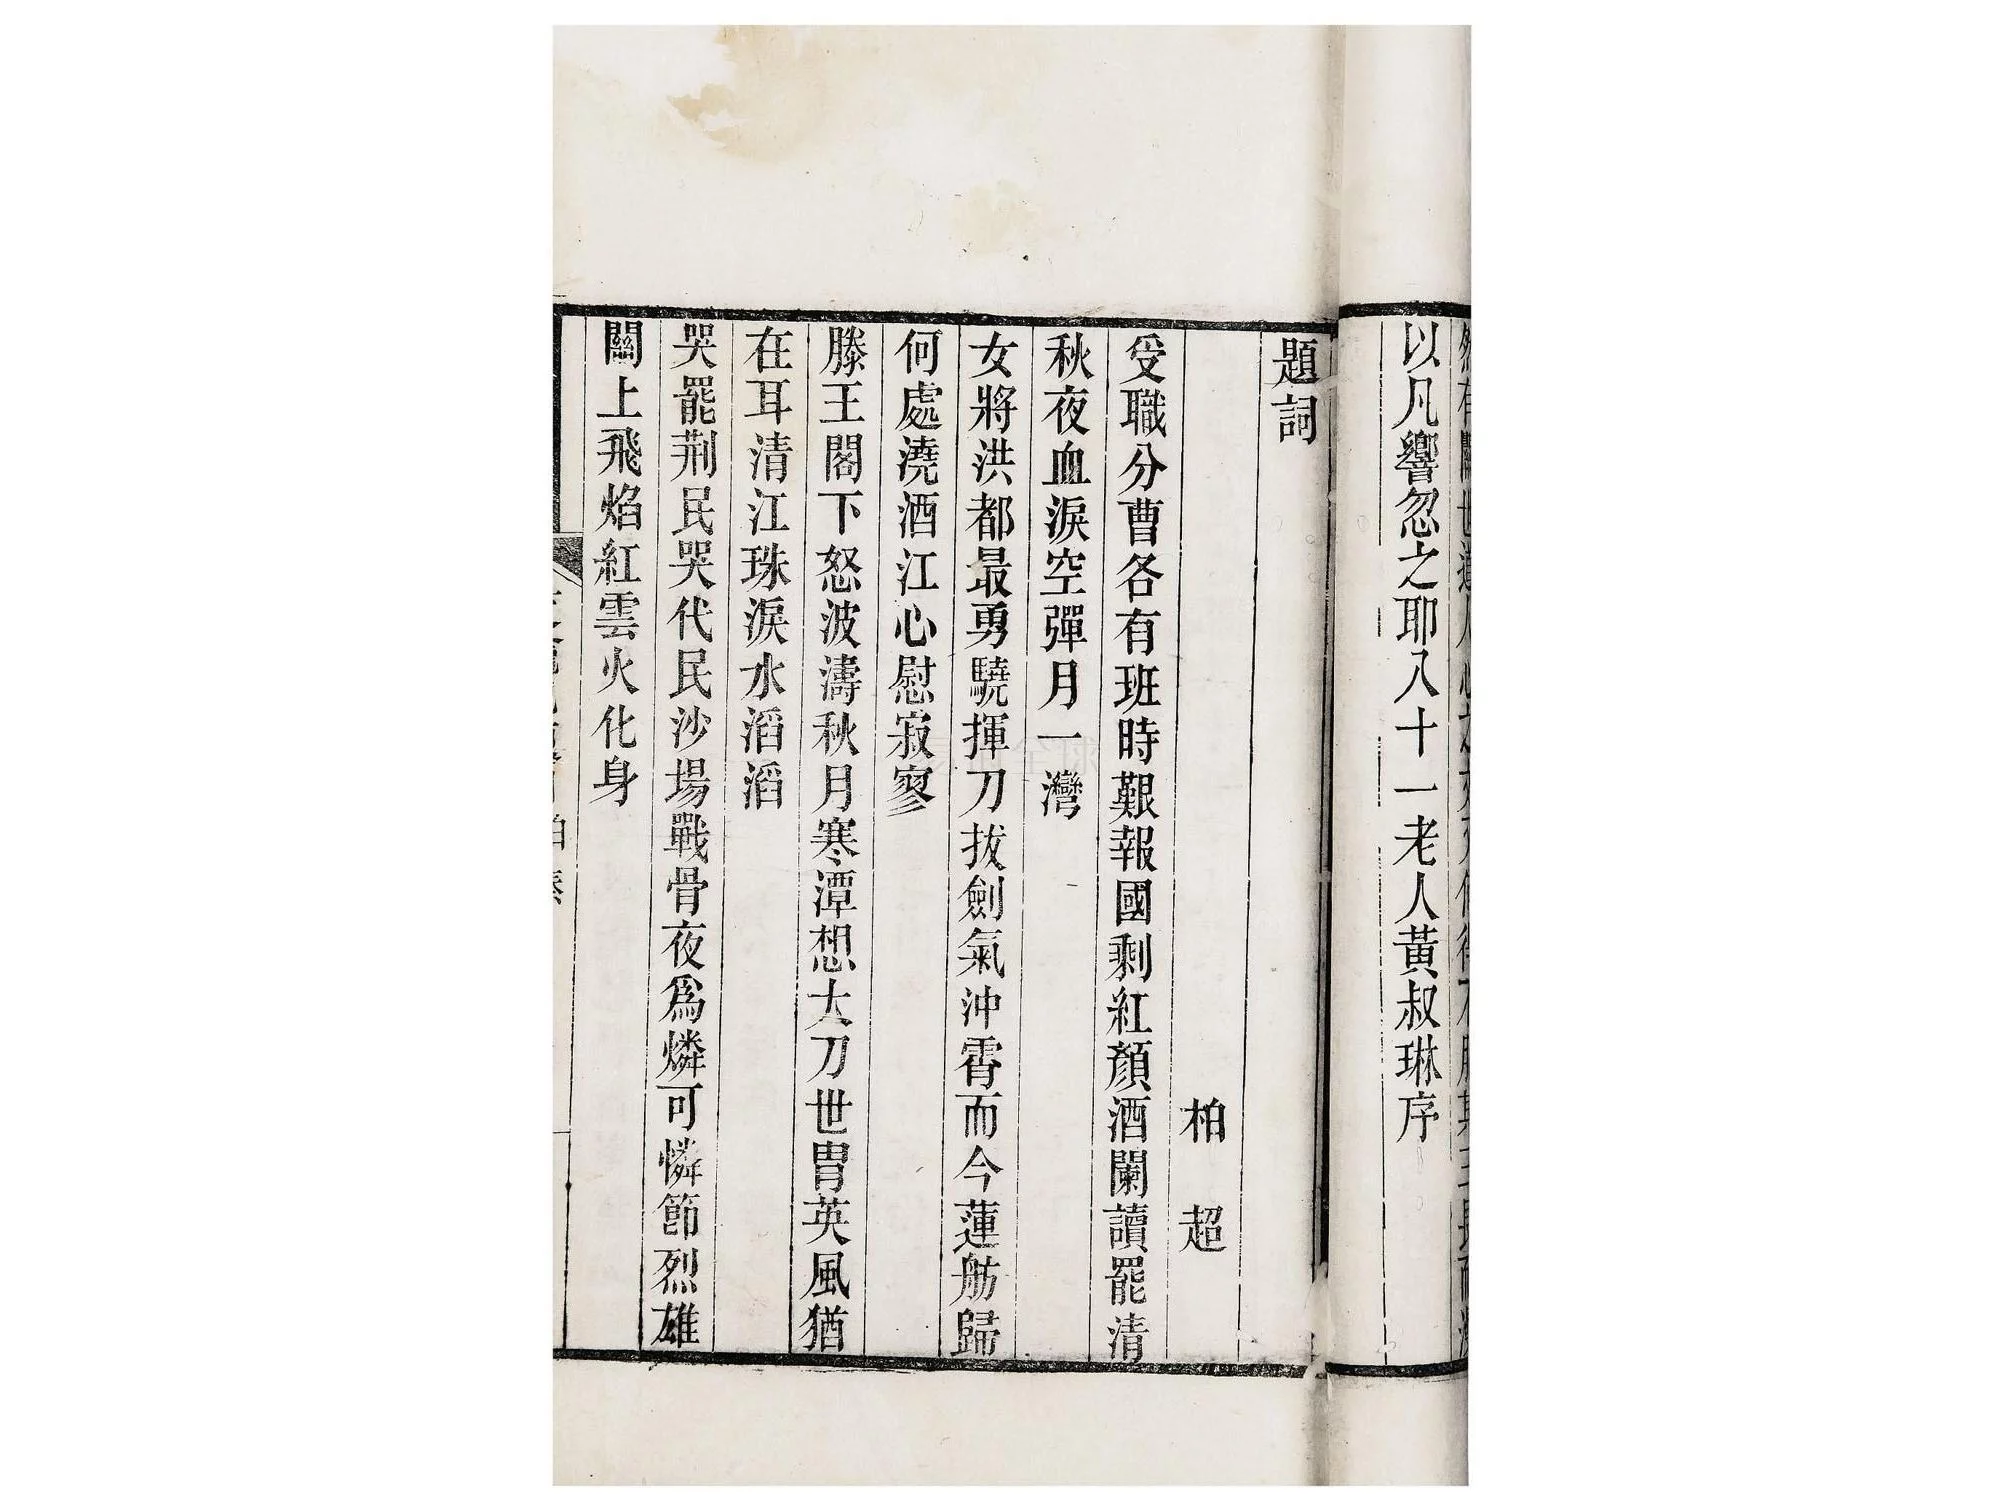 以凡響忽之耶八十一老人黃叔琳序
題詞
柏超
受職分曹各有班時艱報國剩紅顏酒闌讀罷清
秋夜血淚空彈月一灣
女將洪都最勇驍揮刀拔劍氣沖霄而今蓮舫歸
何處澆酒江心慰寂寥
滕王閣下怒波濤秋月寒潭想大刀世胄英風猶
在耳清江珠淚水滔滔
哭罷荆民哭代民沙場戰骨夜爲燐可憐節烈雄
關上飛焰紅雲火化身